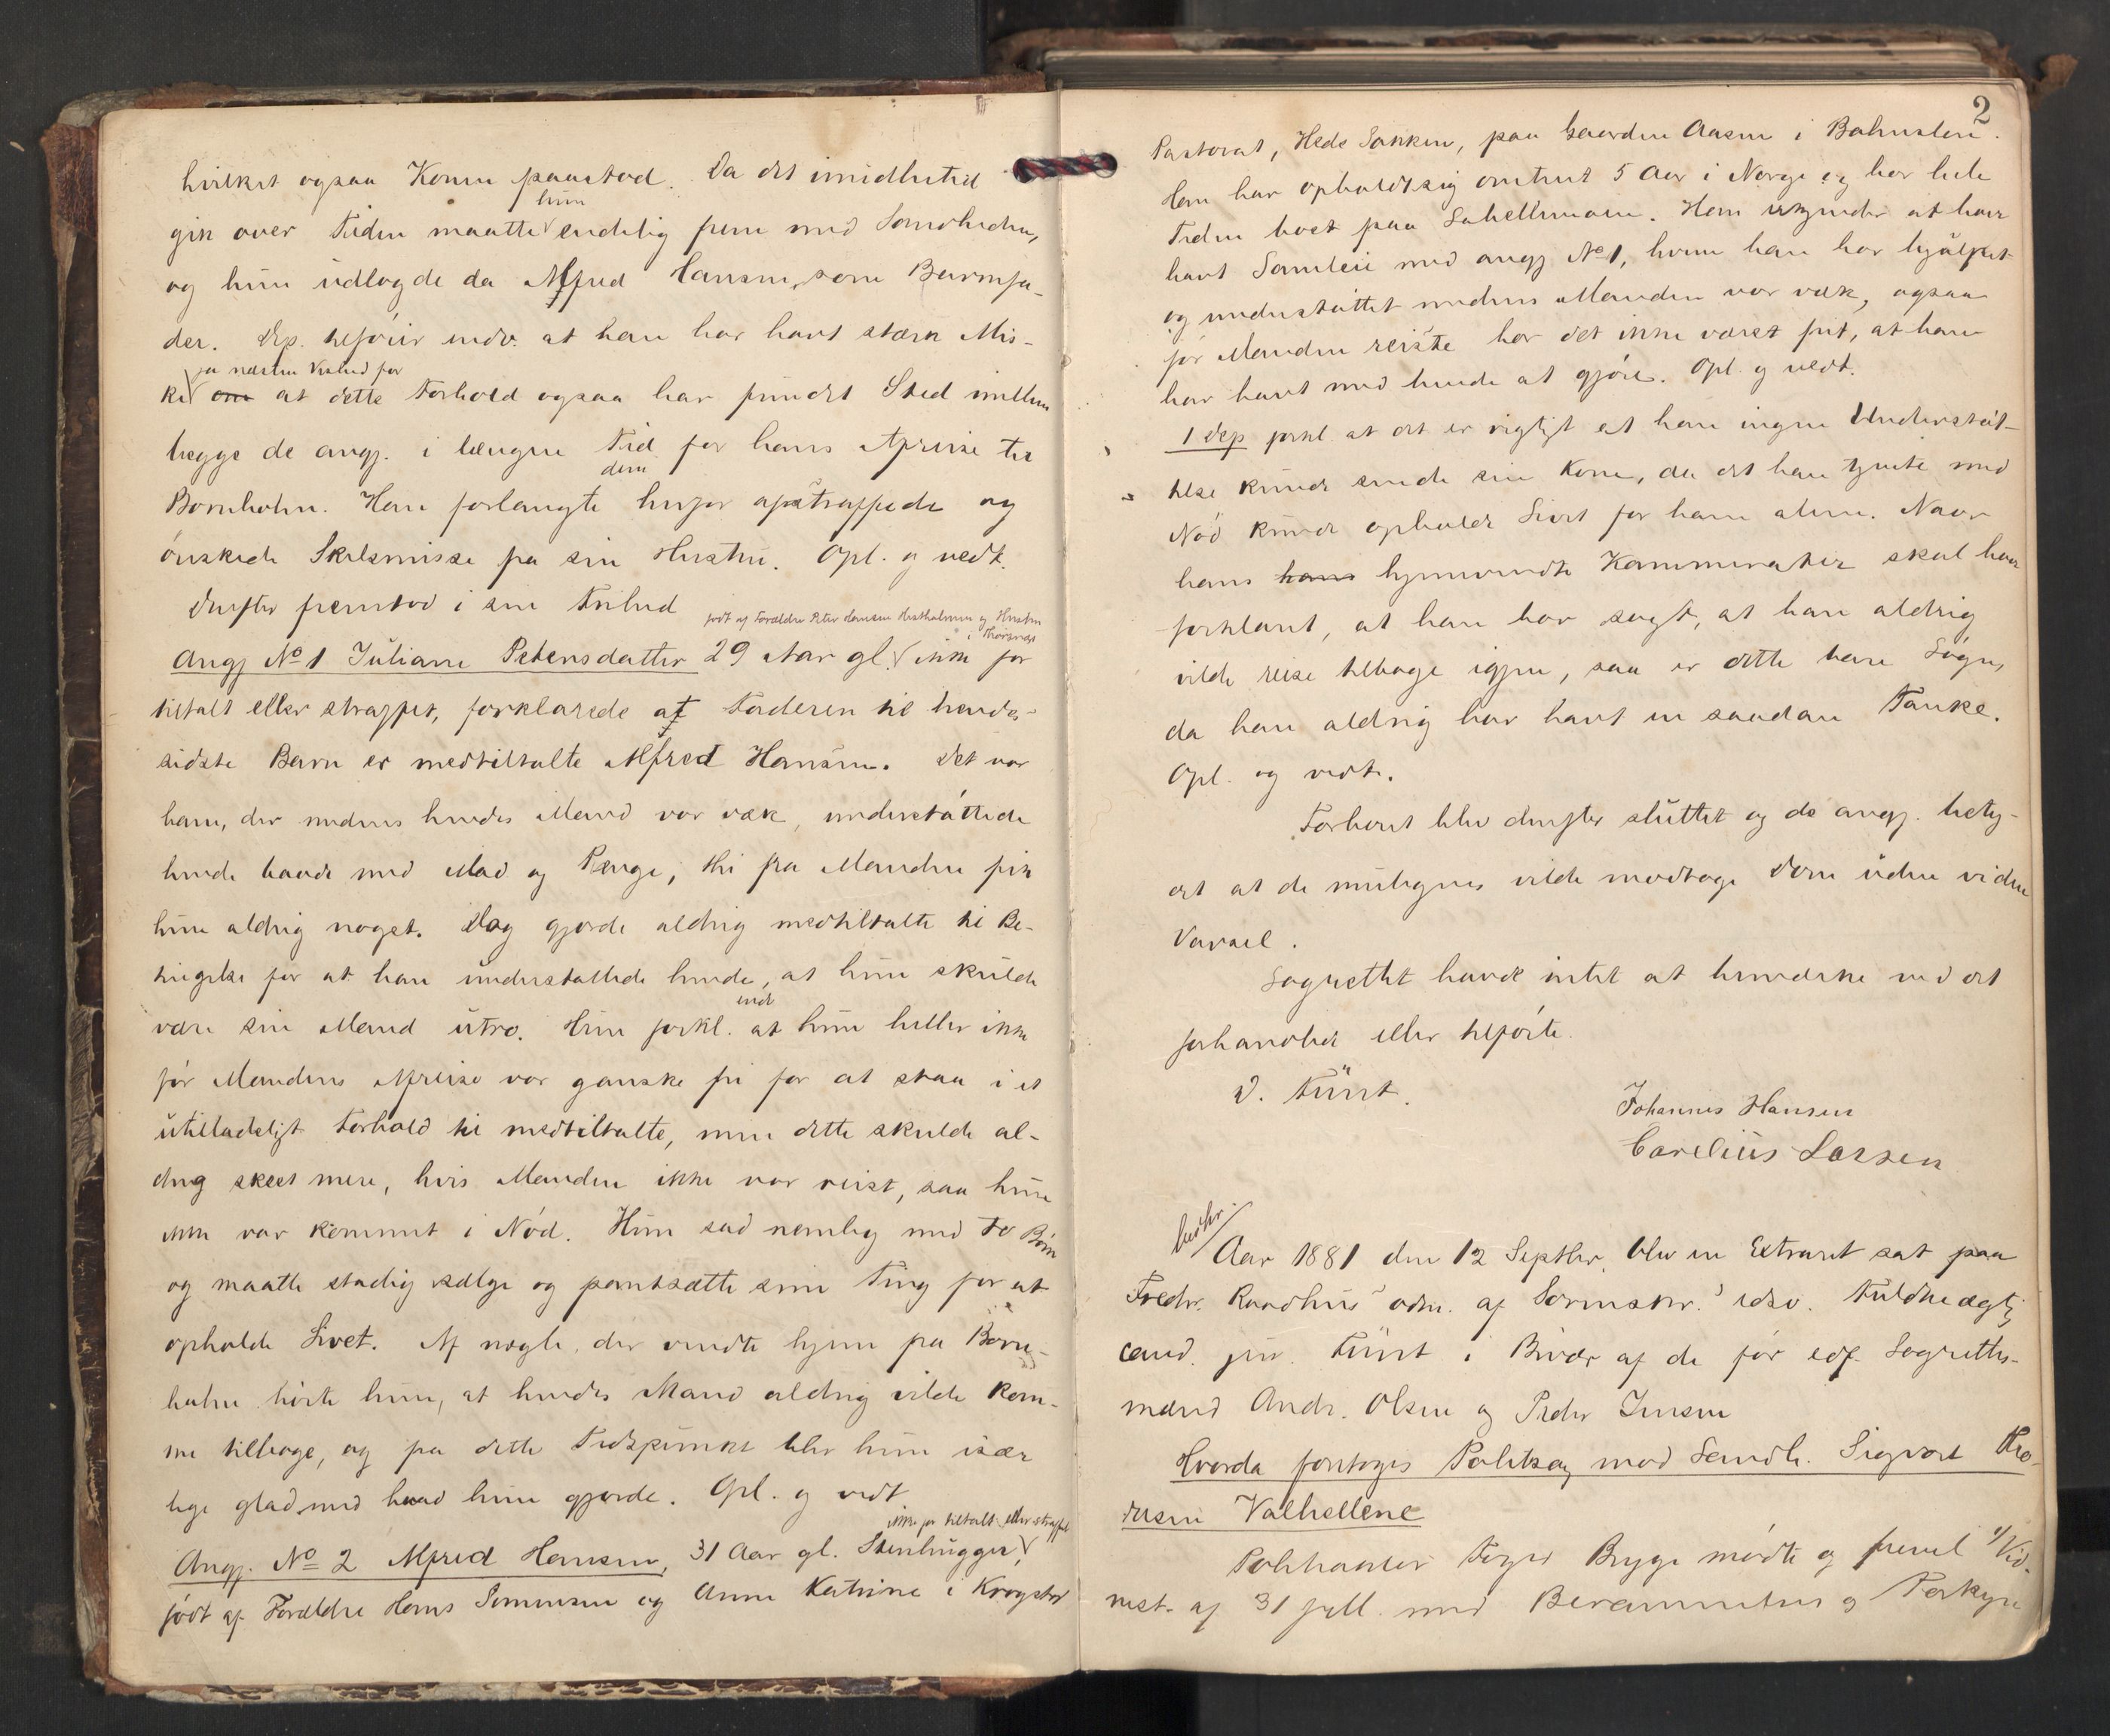 hvilket ogsaa Konen paastod. Da det imidlertid
gik over Tiden maatte hun endelig frem med Sandheden,
og hun udlagde da Alfred Hansen som Barnefa-
der. Dep. tilføier endv. at han har havt stærk Mis-
ja næsten Vished for
ke om at dette Forhold ogsaa har fundet Sted imellem
begge de angj. i længere Tid før hans Afreise til
Bornholm. Han forlangte herfor dem afstraffede og
önskede Skilsmisse fra sin Hustru. Opl. og vedt.
Derefter fremstod i sin Frihed
født af Forældre Peter Hansen og Hustru
i Thorsnæs
Angj No 1 Juliane Petersdatter 29 Aar gl. ikke før
tiltalt eller straffet, forklarede at Faderen til hendes
sidste Barn er medtiltalte Alfred Hansen. Det var
ham, der medens hendes Mand var væk, understöttede
hende baade med Mad og Penge, thi fra Manden fik
hun aldrig noget. Dog gjorde aldrig medtiltalte til Be-
tingelse for at han understøttede hende, at hun skulde
være sin Mand utro. Hun forkl. endv. at hun heller ikke
før Mandens Afreise var ganske fri for at staa i et
utilladeligt Forhold til medtiltalte, men dette skulde al-
drig skeet mere, hvis Manden ikke var reist, saa hun
ikke var kommet i Nød. Hun sad nemlig med to Børn
og maatte stadig sælge og pantsætte sine Ting for at
opholde Livet. Af nogle, der vendte hjem fra Born-
holm hørte hun, at hendes Mand aldrig vilde kom-
me tilbage, og fra dette Tidspunkt blev hun især
lige glad med hvad hun gjorde. Opl. og vedt
ikke før tiltalt eller straffet
Angj. No 2 Alfred Hansen, 31 Aar gl. Stenhugger,
født af Forældre Hans Simensen og Anne Katrine i Krogstad
2
Pastorat, Heds Sokken, paa Gaarden Aasen i Bahuslen.
Han har opholdt sig omtrent 5 Aar i Norge og har hele
Tiden boet paa. Han erkjender at have
havt Samleie med angj No 1, hvem han har hjælpet
og understøttet medens Manden var væk, ogsaa
før Manden reiste har det ikke været frit, at han
har havt med hende at gjöre. Opl. og vedt.
1 Dep forkl. at det er rigtigt at han ingen Understöt-
telse kunde sende sin Kone, da det han tjente med
Nød kunde opholde Livet for ham alene. Naar
hans hans hjemvendte Kammerater skal have
forklart, at han har sagt, at han aldrig
vilde reise tilbage igjen, saa er dette bare Løgn,
da han aldrig har havt en saadan Tanke.
Opl. og vedt.
Forhöret blev derefter sluttet og de angj. betyd-
et at de muligens vilde modtage Dom uden videre
Varsel.
Lagrettet havde intet at bemærke ved det
forhandlede eller tilførte.
V. Fürst.
Johannes Hansen
Carelius Larsen
beskr.
Aar 1881 den 12 Septbr. blev en Extraret sat paa
Fredr. Raadhus adm. af Sorenskr.s edsv. Fuldmægtig
cand. jur. Fürst i Bivær af de før edf. Lagrettes-
mænd Andr. Olsen og Peder Jensen
Hvorda foretoges Politisag mod Landh. Sigvart Theo-
dersen Valhellene
Politimester Foged Brygge mødte og freml 1/
af 31 f. M. med Berammelse og Forkyn